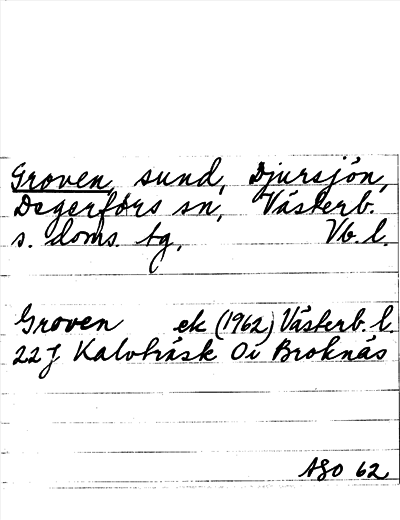 Groven, sund, Djursjön,
Degerfors sn, Västerb.
s. doms. tg, Vb. l.
Groven ek (1962) Västerb. l.
22 J Kalvträsk Oi Broknäs
ASO 62